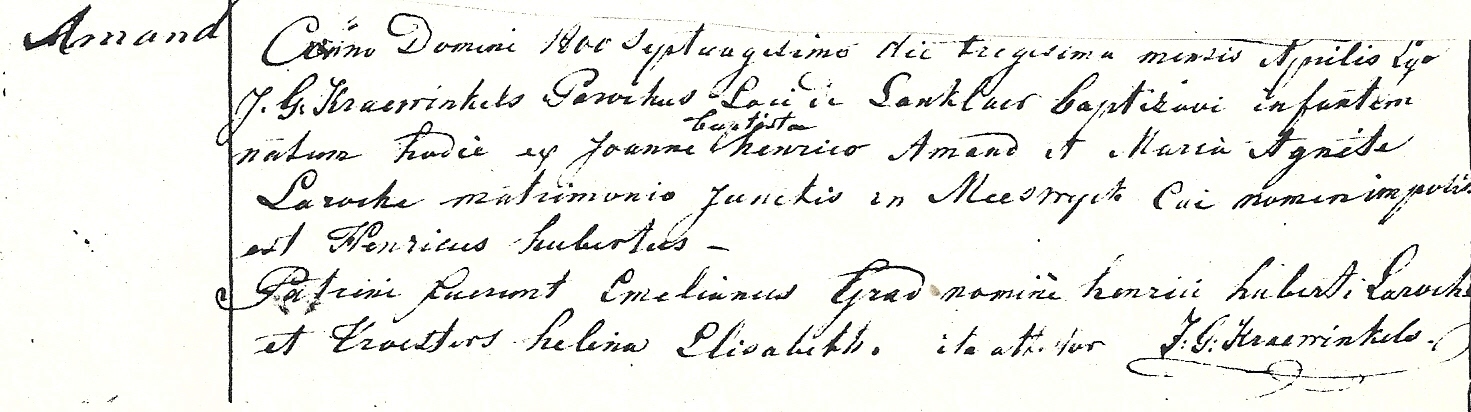 Amand
Anno Domini 1800 Septuagesimo die tregesima mensis Aprilis Ego
J. G. Kraewinkels Parochus Loci de Lanklaer baptizavi infantem
baptista
natum hodie ex Joanne henrico Amand et Maria Agnete
Laroche matrimonio junctis in Meeswyck Cui nomen impositu
est Henricus hubertus –
Patrini fuerunt Emelianus Grad nomine henrici huberti Laroche
et Kroesters helena Elisabeth. ita attestor J. G. Kraewinkels.